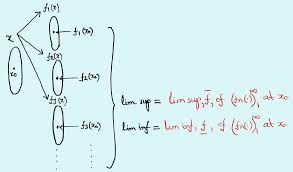 f1(x)
x
f1(x0)
x0
f2(x)
f2(x0)
f3(x)
f3(x0)
lim sup = lim sup, f̅, of (fn(·))₁^∞ at x0
lim inf = lim inf, f̲, of (fn(·))₁^∞ at x0